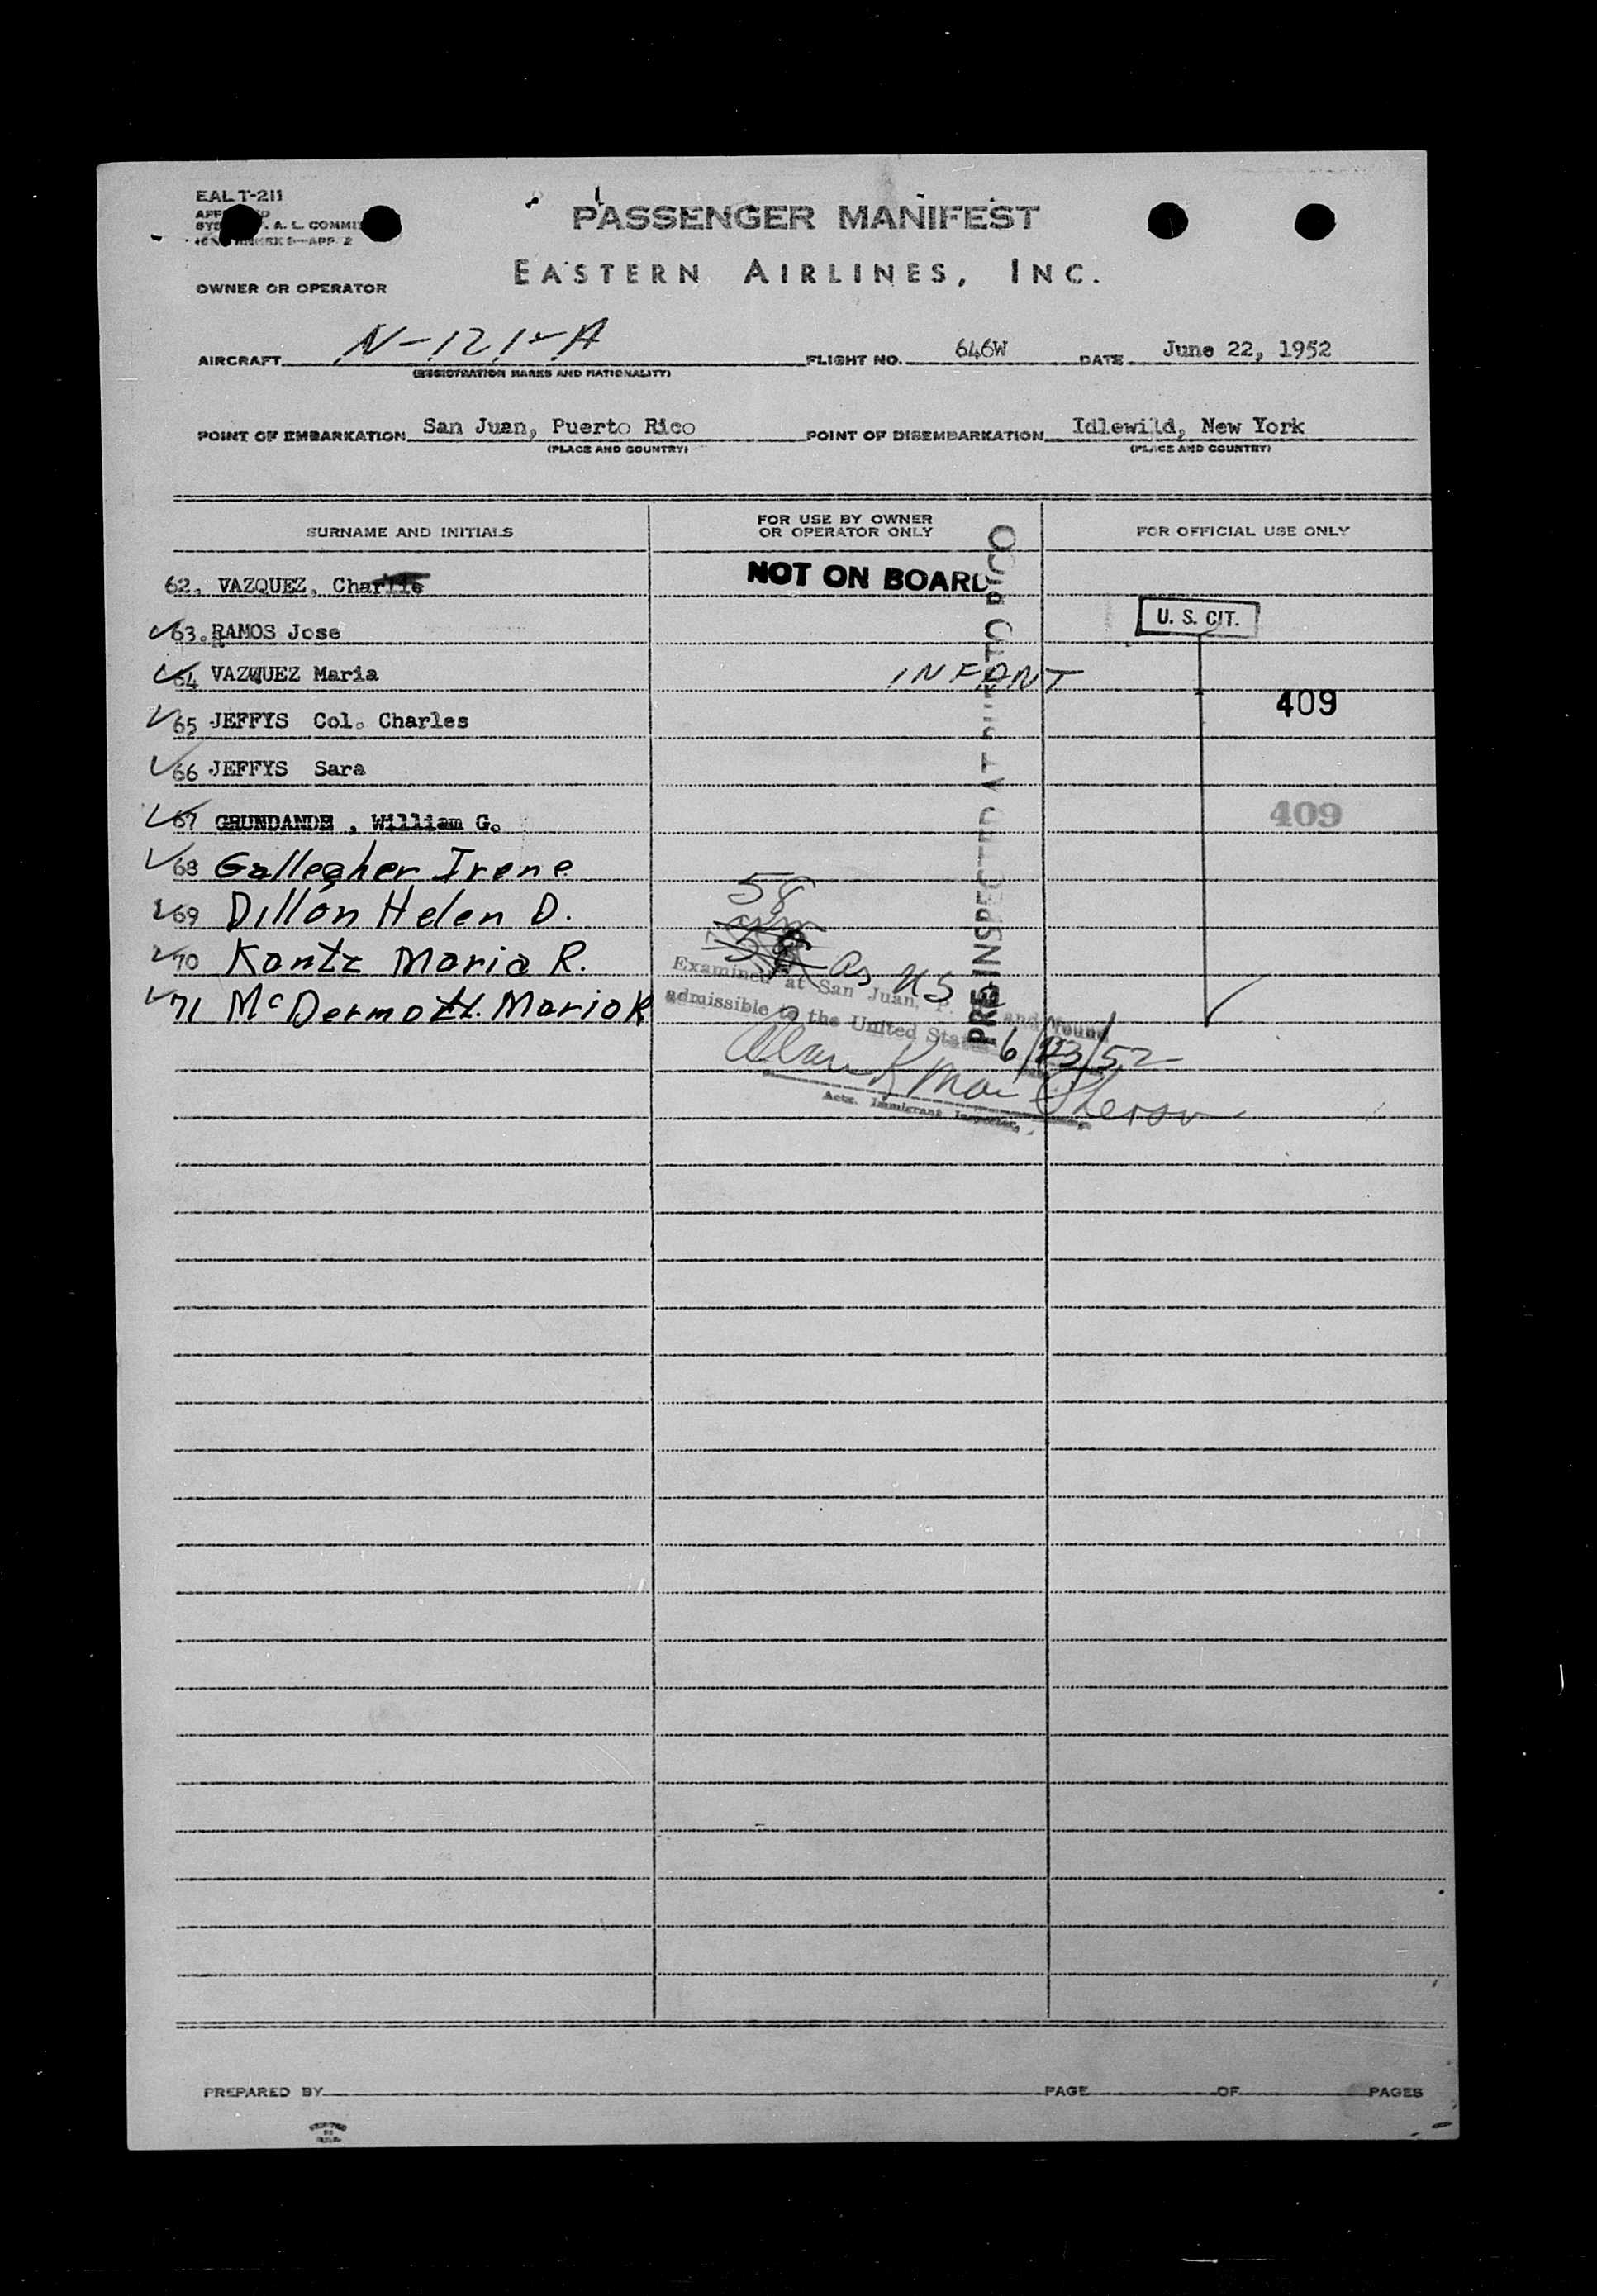 EAL T-211
PASSENGER MANIFEST
EASTERN AIRLINES, INC.
OWNER OR OPERATOR
AIRCRAFT FLIGHT NO. 646W DATE June 22, 1952
(REGISTRATION MARKS AND NATIONALITY)
POINT OF EMBARKATION San Juan, Puerto Rico POINT OF DISEMBARKATION Idlewild, New York
(PLACE AND COUNTRY) (PLACE AND COUNTRY)
SURNAME AND INITIALS FOR USE BY OWNER OR OPERATOR ONLY FOR OFFICIAL USE ONLY
62. VAZQUEZ, Charlie NOT ON BOARD
63. RAMOS Jose U. S. CIT.
64 VAZQUEZ Maria INFANT
65 JEFFYS Col. Charles 409
66 JEFFYS Sara
67 GRUNDANDE, William G. 409
68 Gallegher Irene
69 Dillon Helen D. 58
70 Kantz Maria R.
71 McDermott. Maria R
as US
Examined at San Juan, P. and found
admissible to the United States
6/23/52
Immigrant Inspector
PRE INSPECTED AT PUERTO RICO
PREPARED BY PAGE OF PAGES